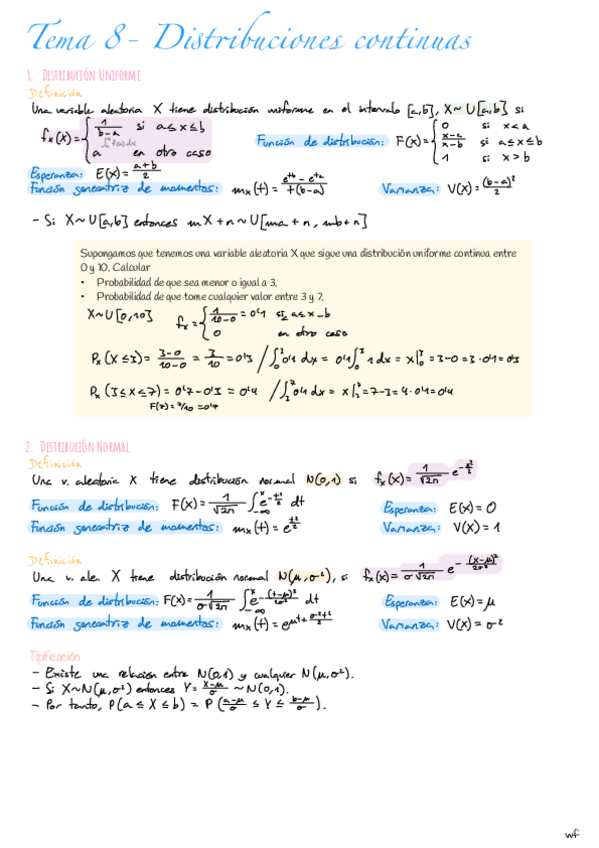 Tema 8- Distribuciones continuas
1. DISTRIBUCIÓN UNIFORME
Definición
Una variable aleatoria X tiene distribución uniforme en el intervalo [a,b], X~U[a,b] si
fx(x) = { 1/(b-a) si a≤x≤b
a en otro caso
Función de distribución: F(x) = { 0 si x<a
(x-a)/(x-b) si a≤x≤b
1 si x>b
Esperanza: E(x) = (a+b)/2
Función generatriz de momentos: mx(t) = (e^tb - e^ta)/(t(b-a))
Varianza: V(x) = (b-a)²/2
- Si X~U[a,b] entonces mX+n~U[ma+n, mb+n]
Supongamos que tenemos una variable aleatoria X que sigue una distribución uniforme continua entre
0 y 10. Calcular
• Probabilidad de que sea menor o igual a 3.
• Probabilidad de que tome cualquier valor entre 3 y 7.
X~U[0,10]
fx = { 1/(10-0) = 0'1 si a≤x_b
0 en otro caso
Px(X≤3) = (3-0)/(10-0) = 3/10 = 0'3 / ∫₀³ 0'1 dx = 0'1 ∫₀³ 1 dx = x|₀³ = 3-0 = 3·0'1 = 0'3
Px(3≤x≤7) = 0'7-0'3 = 0'4 / ∫₃⁷ 0'1 dx = x|₃⁷ = 7-3 = 4·0'1 = 0'4
F(7) = 7/10 = 0'7
2. DISTRIBUCIÓN NORMAL
Definición
Una v. aleatoria X tiene distribución normal N(0,1) si fx(x) = 1/√2π e^(-x²/2)
Función de distribución: F(x) = 1/√2π ∫_-∞^x e^(-t²/2) dt
Esperanza: E(x) = 0
Función generatriz de momentos: mx(t) = e^(t²/2)
Varianza: V(x) = 1
Definición
Una v. ale. X tiene distribución normal N(μ,σ²), si fx(x) = 1/(σ√2π) e^(-(x-μ)²/2σ²)
Función de distribución: F(x) = 1/(σ√2π) ∫_-∞^x e^(-(t-μ)²/2σ²) dt
Esperanza: E(x) = μ
Función generatriz de momentos: mx(t) = e^(μt + σ²t²/2)
Varianza: V(x) = σ²
Tipificación
- Existe una relación entre N(0,1) y cualquier N(μ,σ²).
- Si X~N(μ,σ²) entonces Y = (X-μ)/σ ~ N(0,1).
- Por tanto, P(a≤X≤b) = P((a-μ)/σ ≤ Y ≤ (b-μ)/σ).
wf